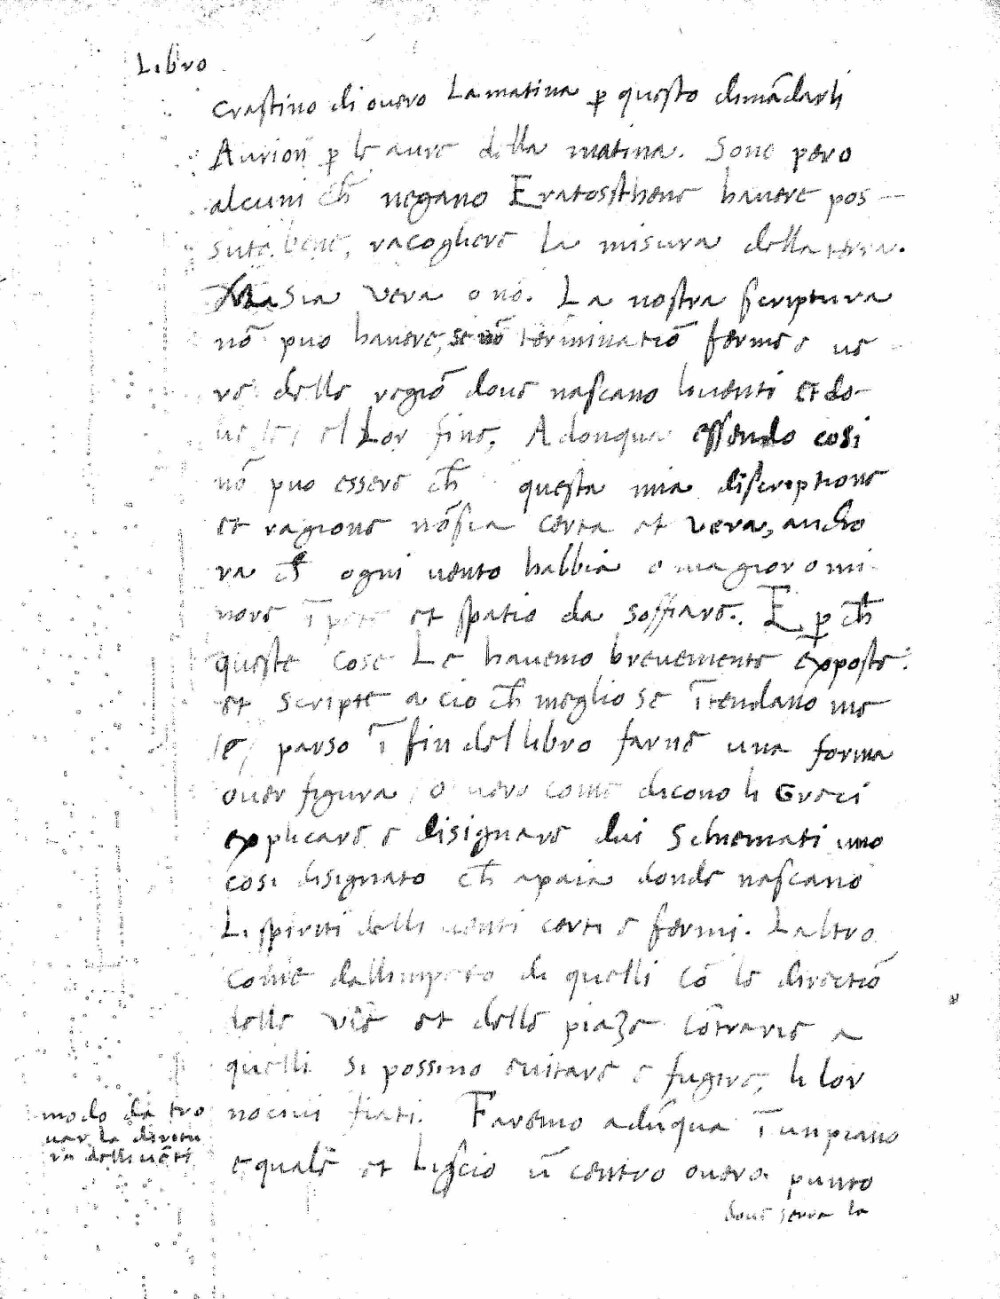 Libro
crastino di overo La matina ꝑ questo dimādarli
Aurion ꝑ le aure della matina. Sono pero
alcuni ch̄ negano Eratosthene havere pos
suto bene, racogliere la misura della terra.
Ma sia vera o nō. La nostra scriptura
nō puo havere, se nō terminatiō ferme e ve
re delle regiō dove nascano li venti et do
ve el Lor fine, Adonqua essendo cosi
nō puo essere ch̄ questa mia discriptione
et ragione nō sia certa et vera, ancho
ra ch̄ ogni vento habbia o magior o mi
nore īpeto et spatio da soffiare. E ꝑ ch̄
queste cose Le havemo brevemente exposte
et scripte a cio ch̄ meglio se ītendano me
e, parso ī fin del libro farne una forma
over figura, o vero come dicono li Greci
explicare e disignare dui Schemati uno
cosi disignato ch̄ apaia donde nascano
Li spiriti delli venti certi e fermi. Laltro
come dallimpeto di quelli cō le directiō
delle vie et delle piaze cōtrarie a
quelli si possino evitare e fugire, li lor
nocivi fiati. Faremo adūqua ī un piano
equale et Liscio ū centro overo punto
dove serra la
modo da tro
var la diretu
ra delli vēti